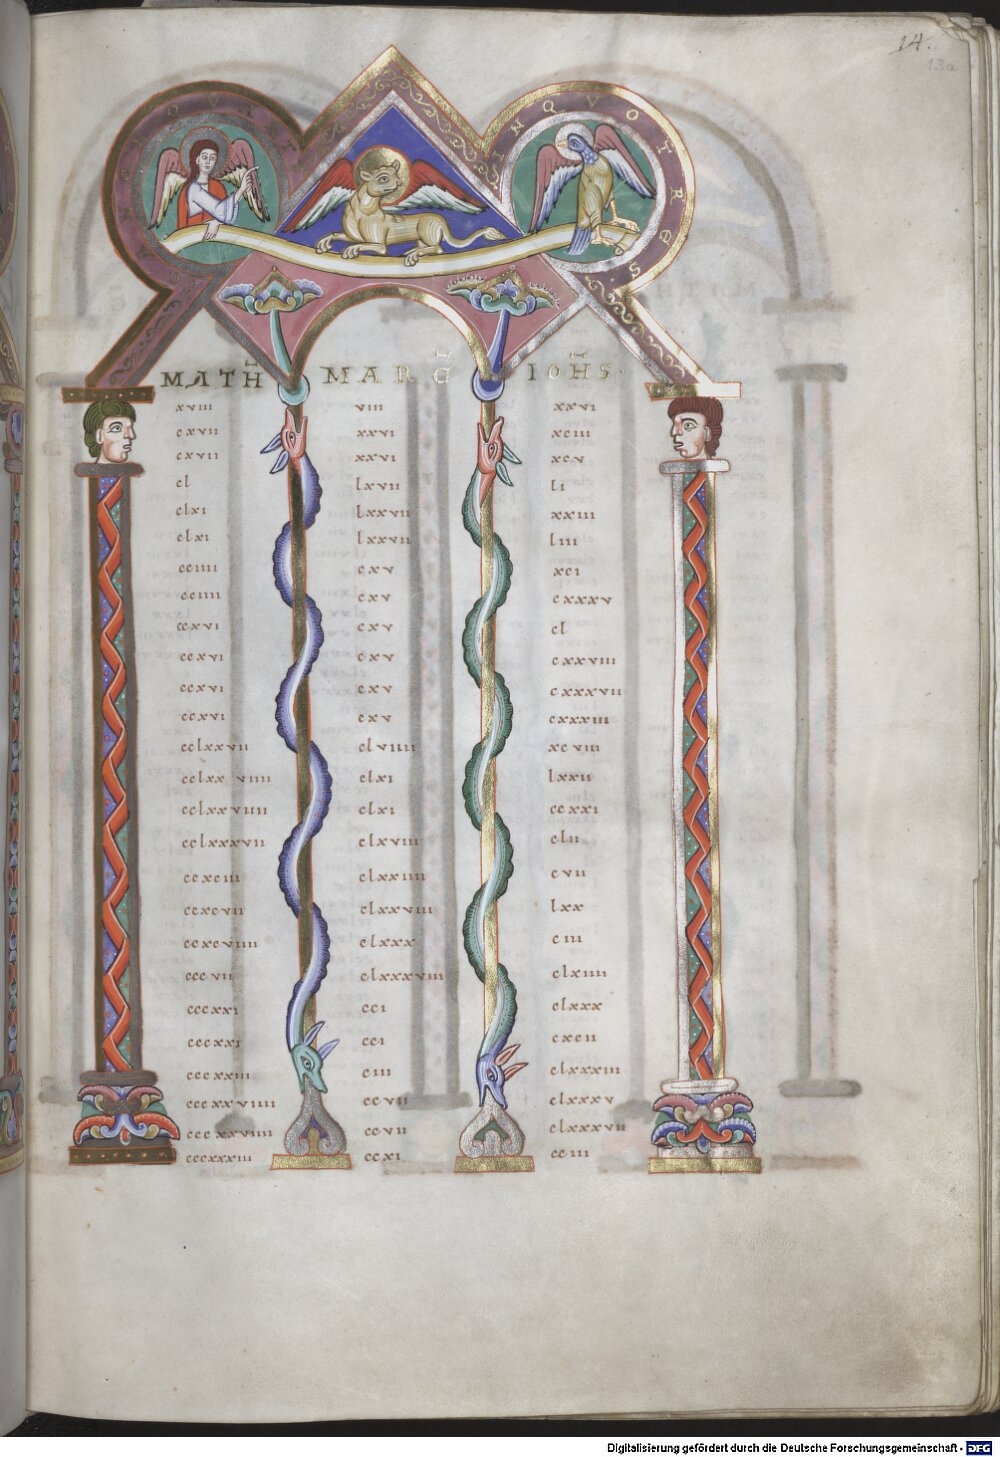 14.
13a
IN QVO TRES
MATH MARC IOHS·
xviii viii xxvi
cxvii xxvi xciii
cxvii xxvi xcv
cl lxvii li
clxi lxxvii xxiii
clxi lxxvii liii
cciiii cxv xci
cciiii cxv cxxxv
ccxvi cxv cl
ccxvi cxv cxxviii
ccxvi cxv cxxxvii
ccxvi cxv cxxxiii
cclxxvii clviiii xcviii
cclxxviiii clxi lxxii
cclxxviiii clxi ccxxi
cclxxxvii clxviii clii
ccxciii clxxiiii cvii
ccxcvii clxxviii lxx
ccxcviiii clxxx ciii
cccvii clxxxviii clxiiii
cccxxi cci clxxx
cccxxi cci cxcii
cccxxiii ciii clxxxiii
cccxxviiii ccvii clxxxv
cccxxviiii ccvii clxxxvii
cccxxxiii ccxi cciii
Digitalisierung gefördert durch die Deutsche Forschungsgemeinschaft - DFG